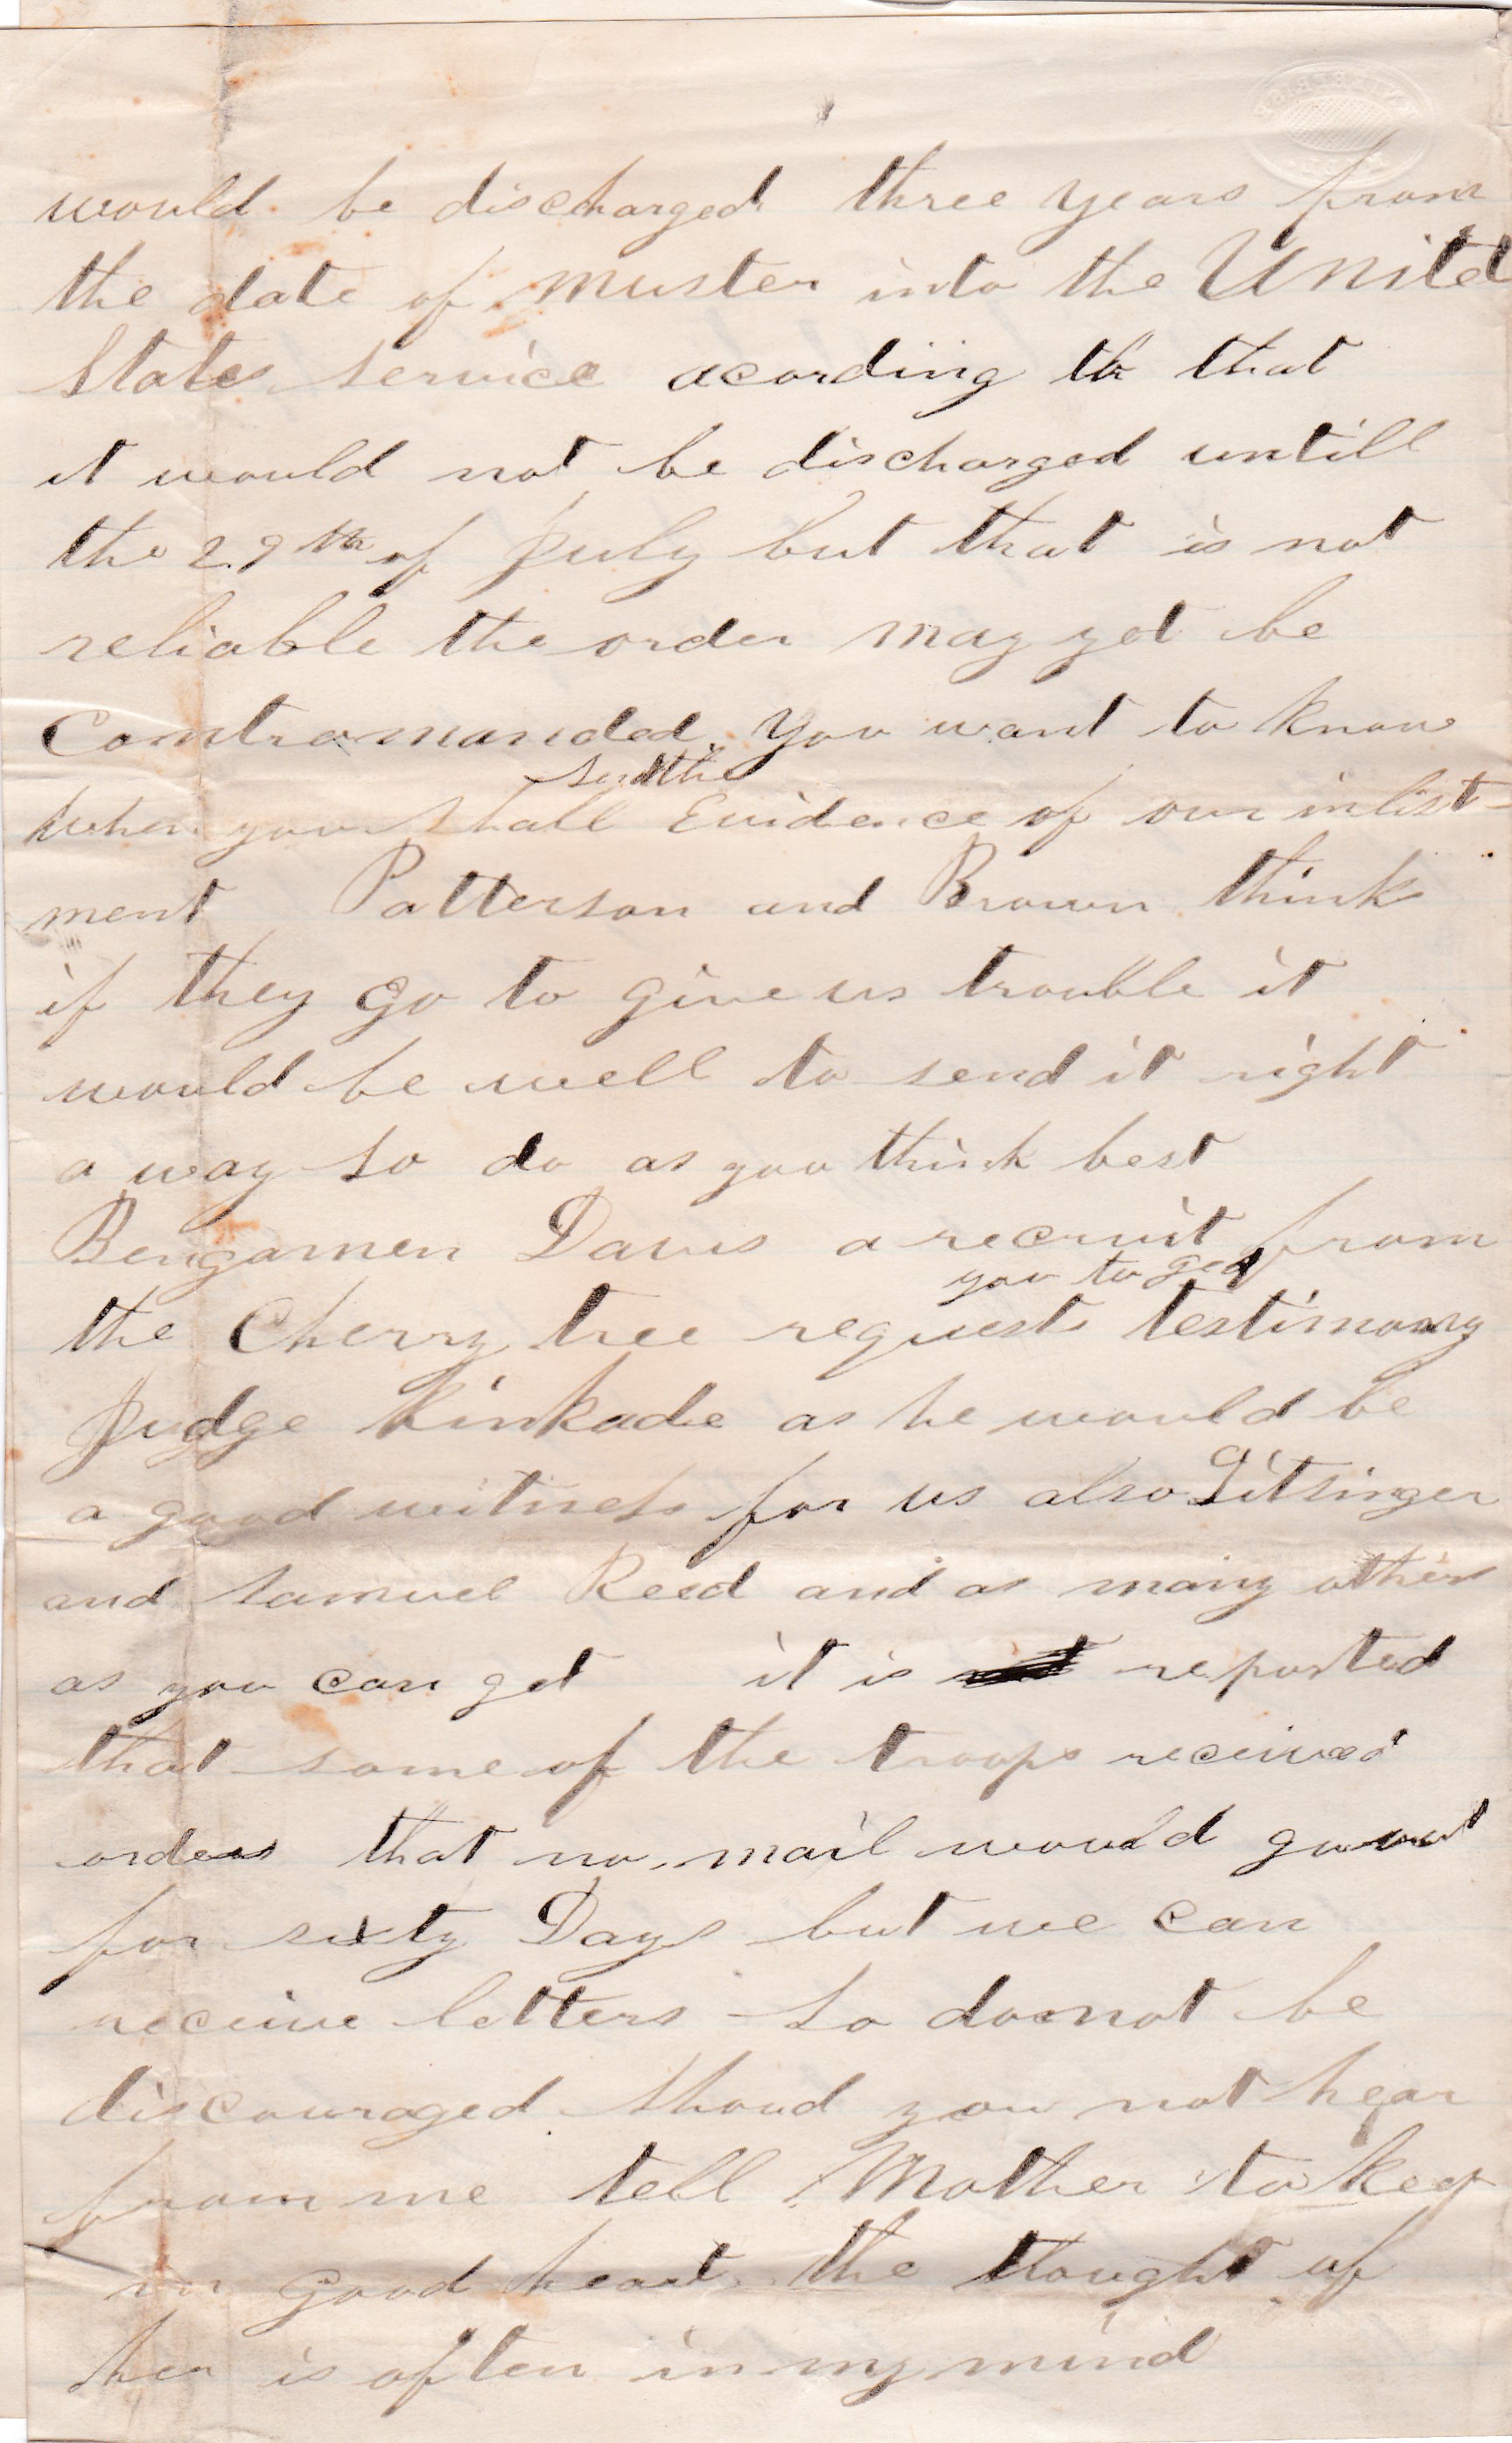 would be discharged three years from
the date of muster into the United
States service acording to that
it would not be discharged untill
the 29th of July but that is not
reliable the order may yet be
Contramanded You want to know
send the
when you shall Evidence of our inlist-
ment Patterson and Brown think
if they go to give us trouble it
would be well to send it right
a way so do as you think best
Bengamen Davis a recruit from
you to get
the Cherry tree requests testimony
Judge Kinkade as he would be
a good witness for us also Gitsinger
and Samuel Reed and as many others
as you can get it is reported
that some of the troops received
orders that no mail would go out
for sixty Days but we can
receive letters so do not be
discouraged shoud you not hear
from me tell Mother to keep
in good heart the thought of
her is often in my mind